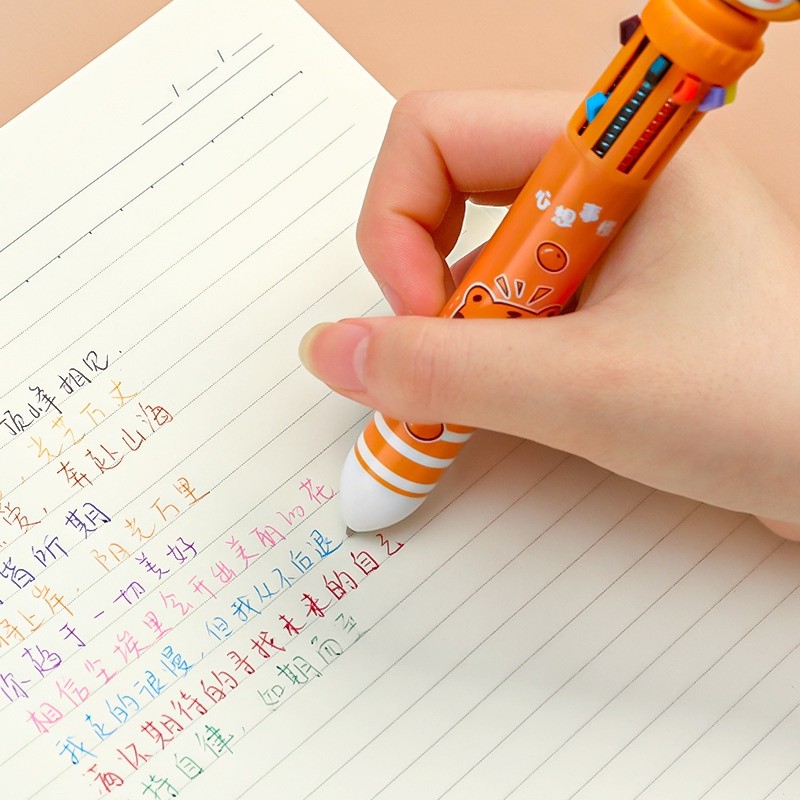 心想事
顶峰相见.
,光芒万丈
爱,奔赴山海
皆所期
得上岸,阳光万里
你趋于一切美好
相信尘埃里会开出美丽的花
我走的很慢,但我从不后退
满怀期待的寻找未来的自己
持自律,如期而至